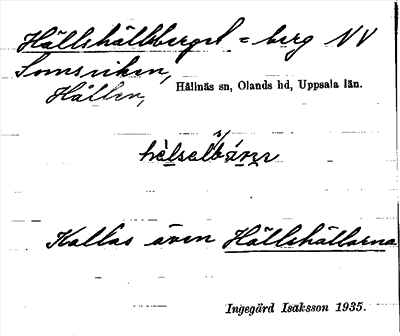 Hällshällsberget = berg NV
Somsviken,
Hållen, Hållnäs sn, Olands hd, Uppsala län.
Kallas även Hällshällarna
Ingegärd Isaksson 1935.